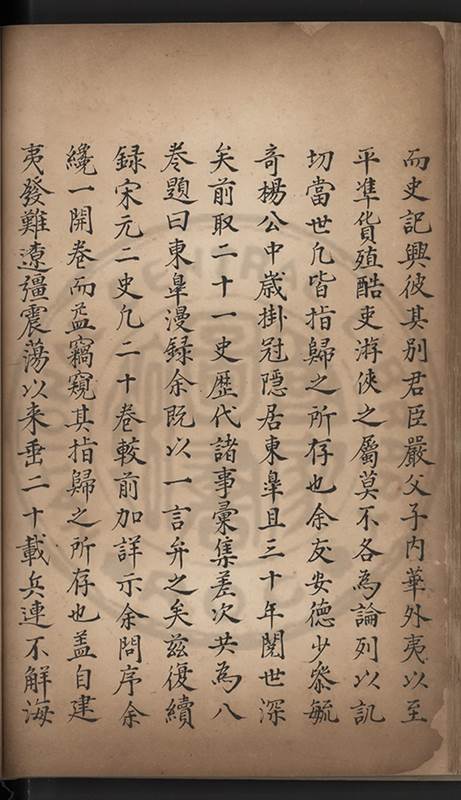 而史記興彼其別君臣嚴父子內華外夷以至
平準貨殖酷吏游俠之屬莫不各為論列以訊
切當世凢皆指歸之所存也余友安德少叅毓
奇楊公中嵗掛冠隱居東臯且三十年閱世深
矣前取二十一史歷代諸事彙集差次共為八
卷題曰東臯漫録余既以一言弁之矣兹復續
録宋元二史凢二十卷較前加詳示余問序余
纔一開卷而益竊窺其指歸之所存也盖自建
夷發難遼彊震蕩以来垂二十載兵連不解海